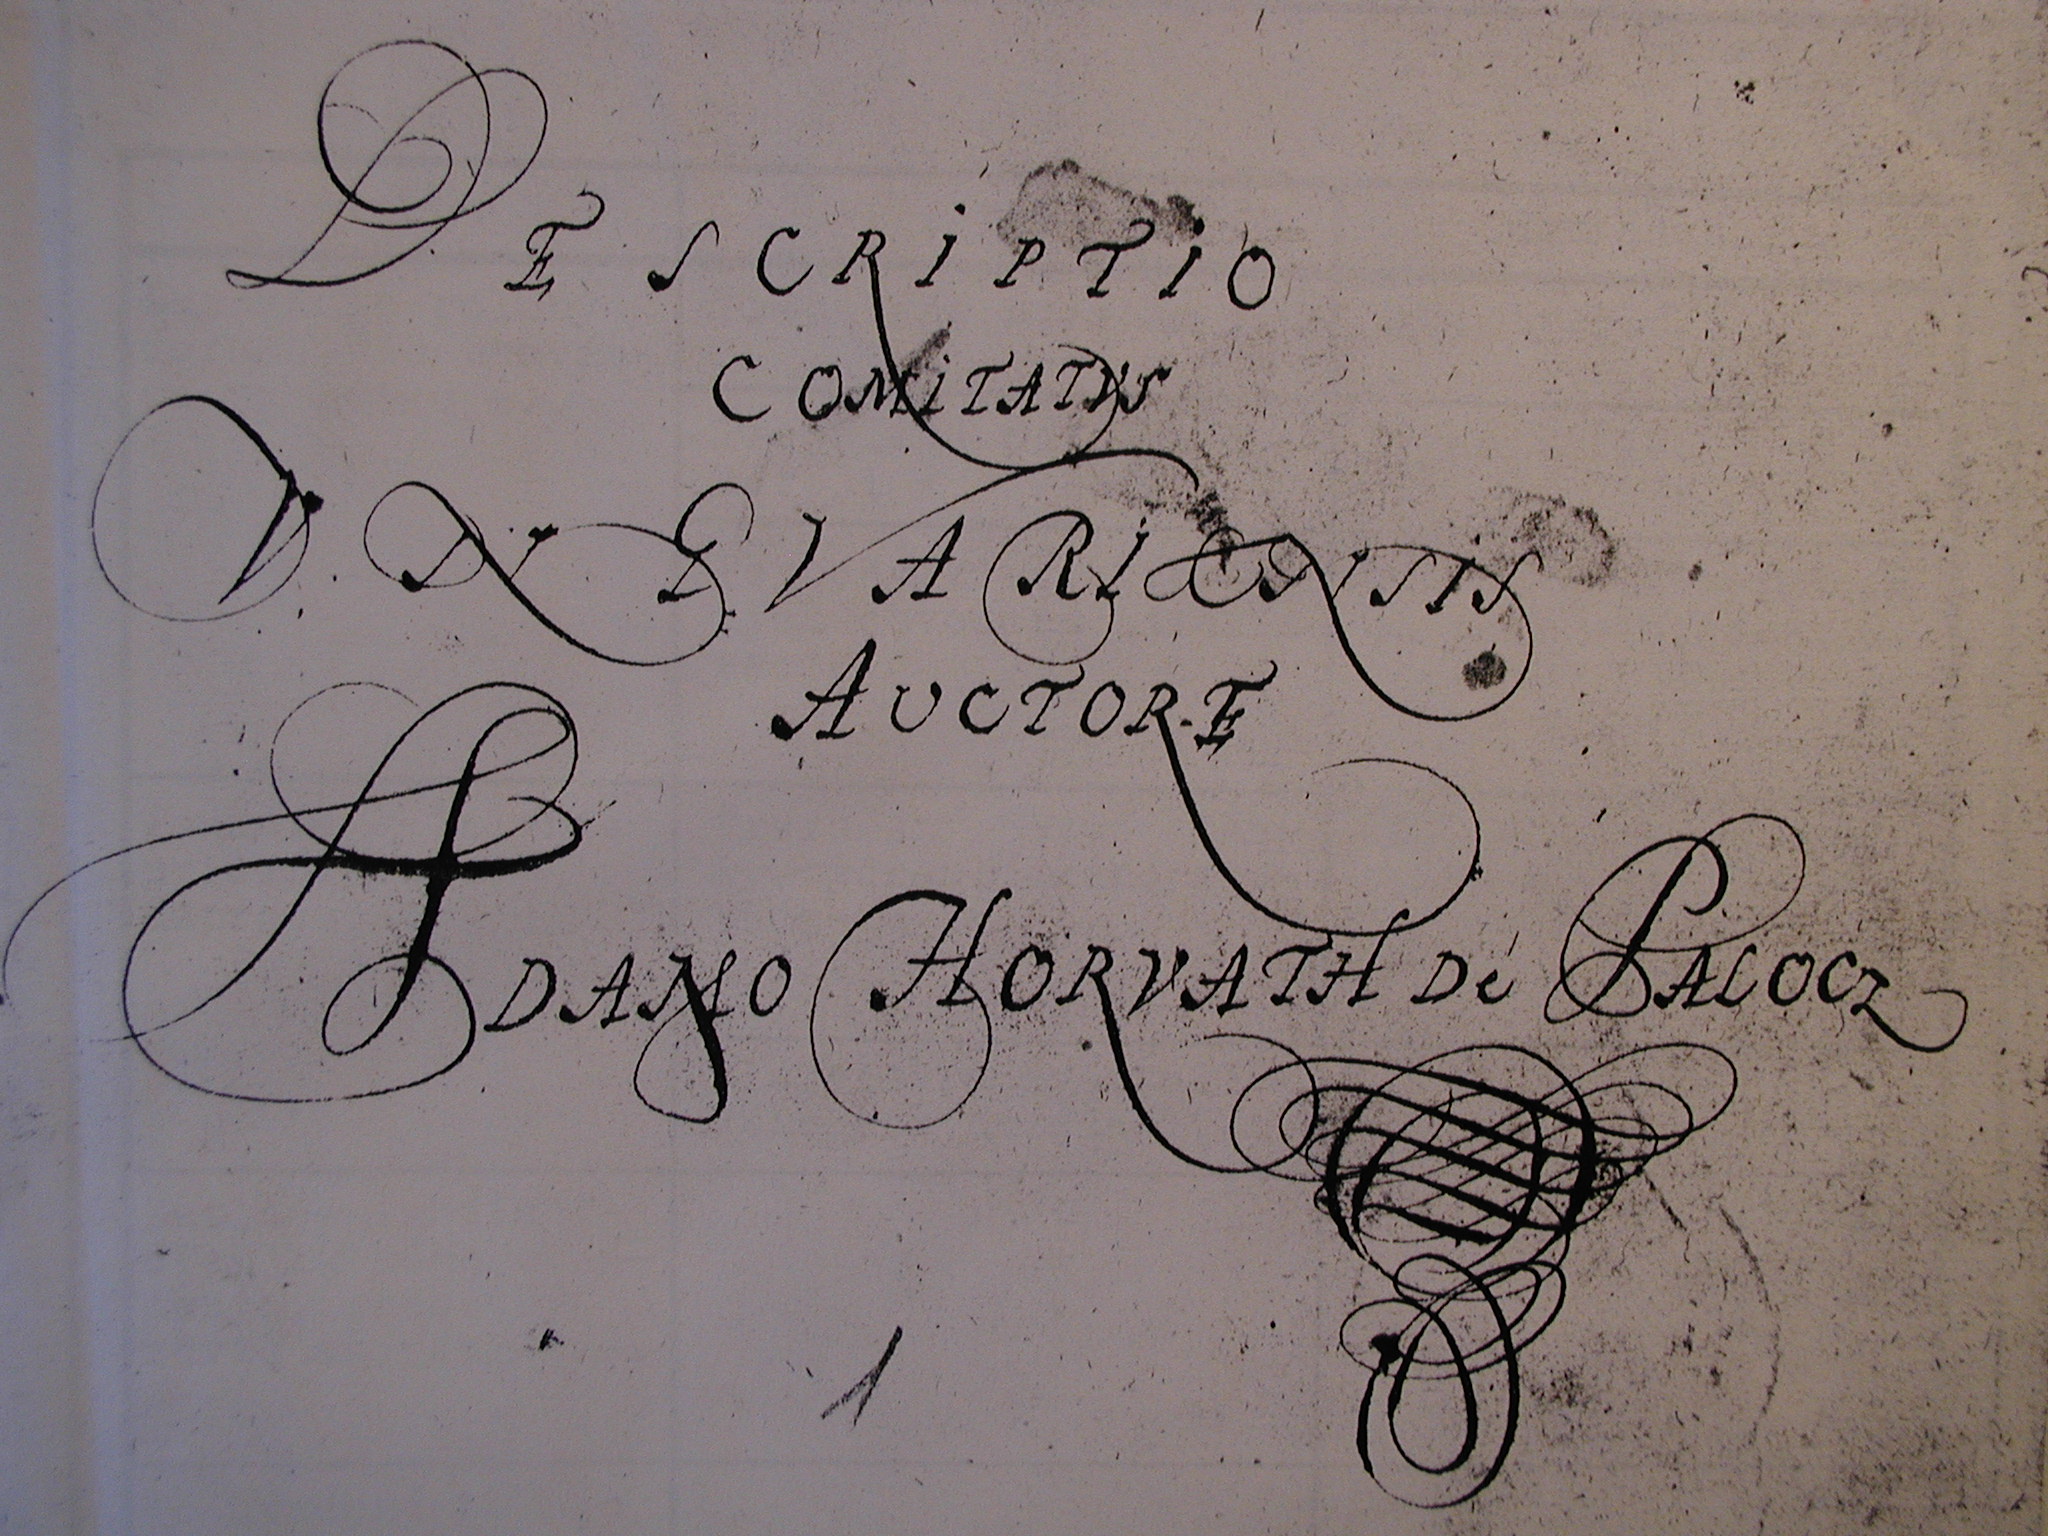 DESCRIPTIO
COMITATVS
VNGVARIENSIS
AUCTORE
ADAMO HORVATH Dé PALOCZ
1